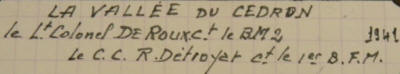 LA VALLÉE DU CEDRON
le Lt Colonel DE ROUX Ct le BM2 1941
Le C.C. R. Détroyat Ct le 1er B.F.M.